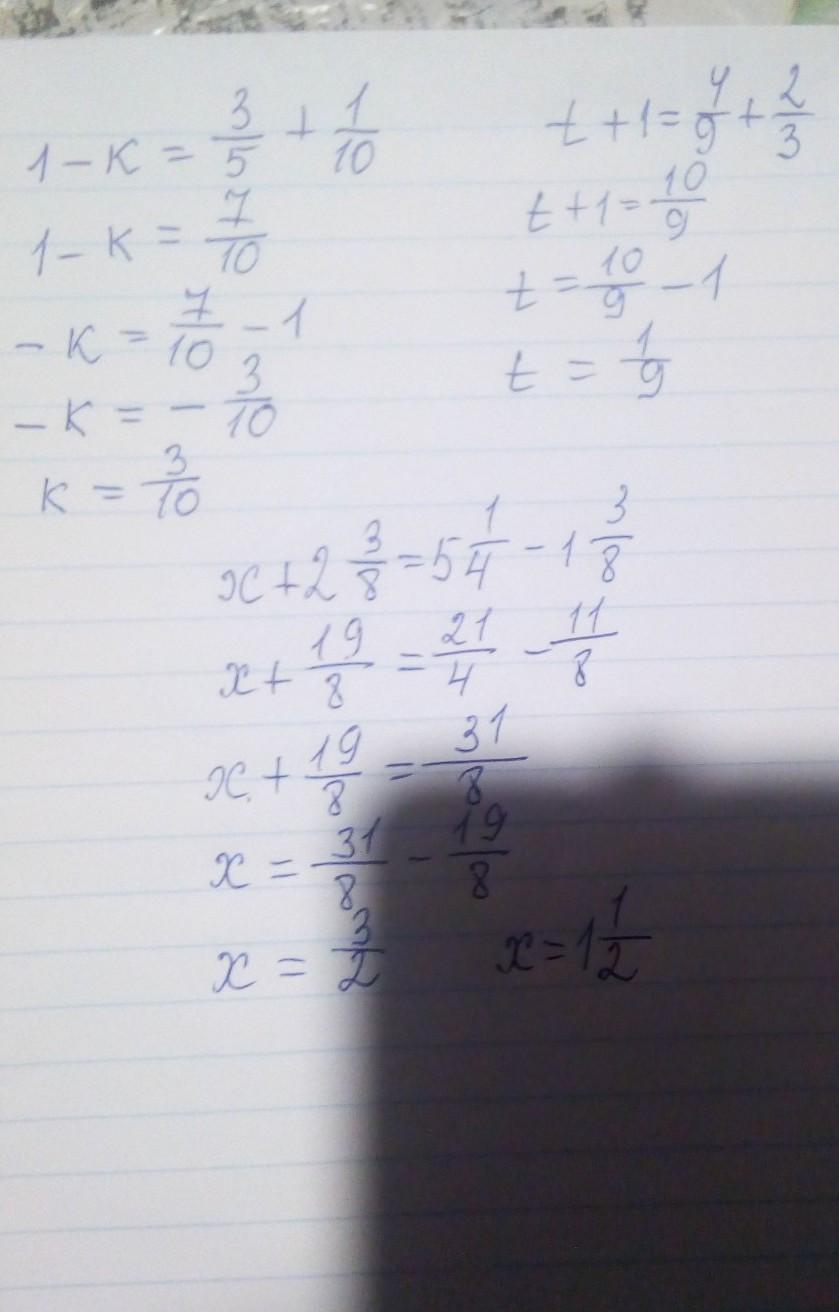 1 - к = 3/5 + 1/10
1 - к = 7/10
- к = 7/10 - 1
- к = - 3/10
к = 3/10
t + 1 = 4/9 + 2/3
t + 1 = 10/9
t = 10/9 - 1
t = 1/9
x + 2 3/8 = 5 1/4 - 1 3/8
x + 19/8 = 21/4 - 11/8
x + 19/8 = 31/8
x = 31/8 - 19/8
x = 3/2 x = 1 1/2